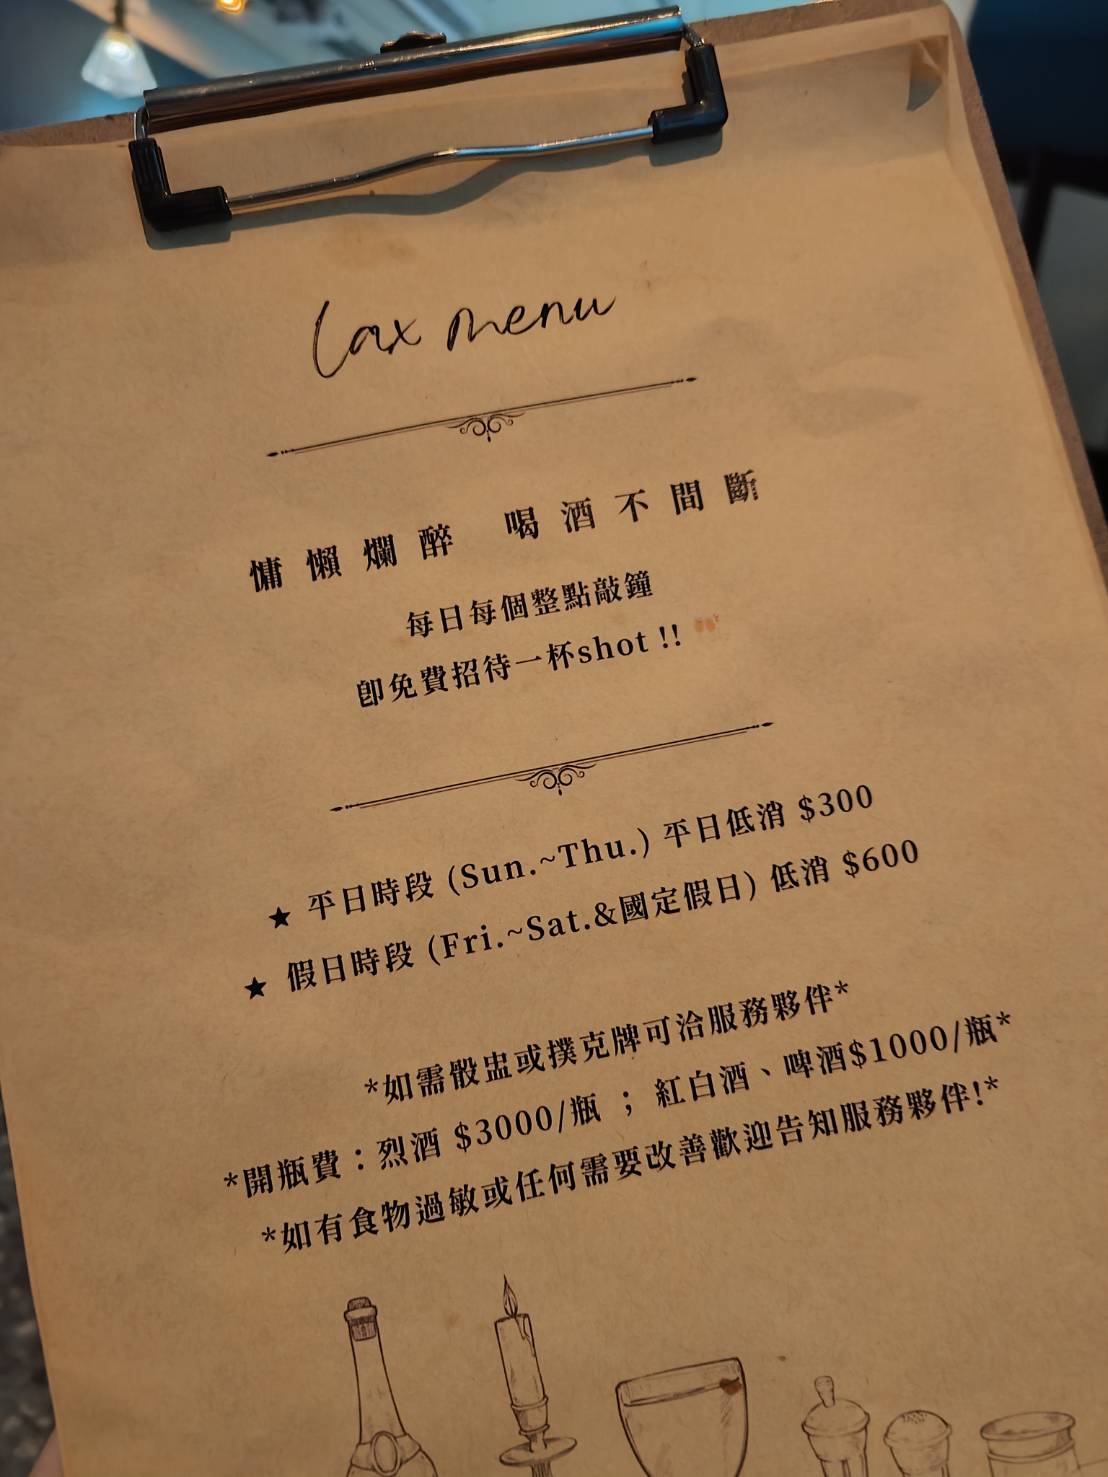 Lax menu
慵懶爛醉 喝酒不間斷
每日每個整點敲鐘
即免費招待一杯shot !!
★ 平日時段 (Sun.~Thu.) 平日低消 $300
★ 假日時段 (Fri.~Sat.&國定假日) 低消 $600
*如需骰盅或撲克牌可洽服務夥伴*
*開瓶費：烈酒 $3000/瓶 ； 紅白酒、啤酒$1000/瓶*
*如有食物過敏或任何需要改善歡迎告知服務夥伴!*